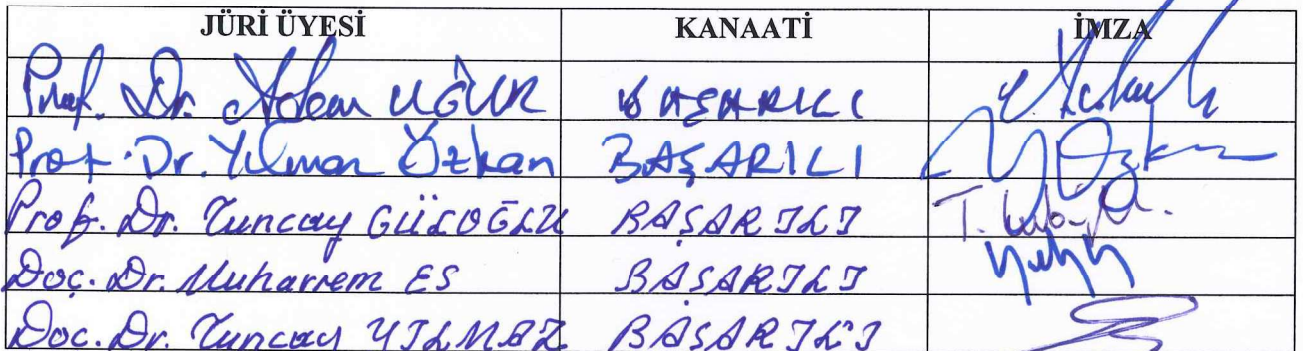 JÜRİ ÜYESİ KANAATİ İMZA
Prof. Dr. Adem UĞUR BAŞARILI
Prof. Dr. Yılman Özkan BAŞARILI Y Özkan
Prof. Dr. Tuncay GÜLOĞLU BAŞARILI
Doç. Dr. Muharrem ES BAŞARILI
Doç. Dr. Tuncay YILMAZ BAŞARILI